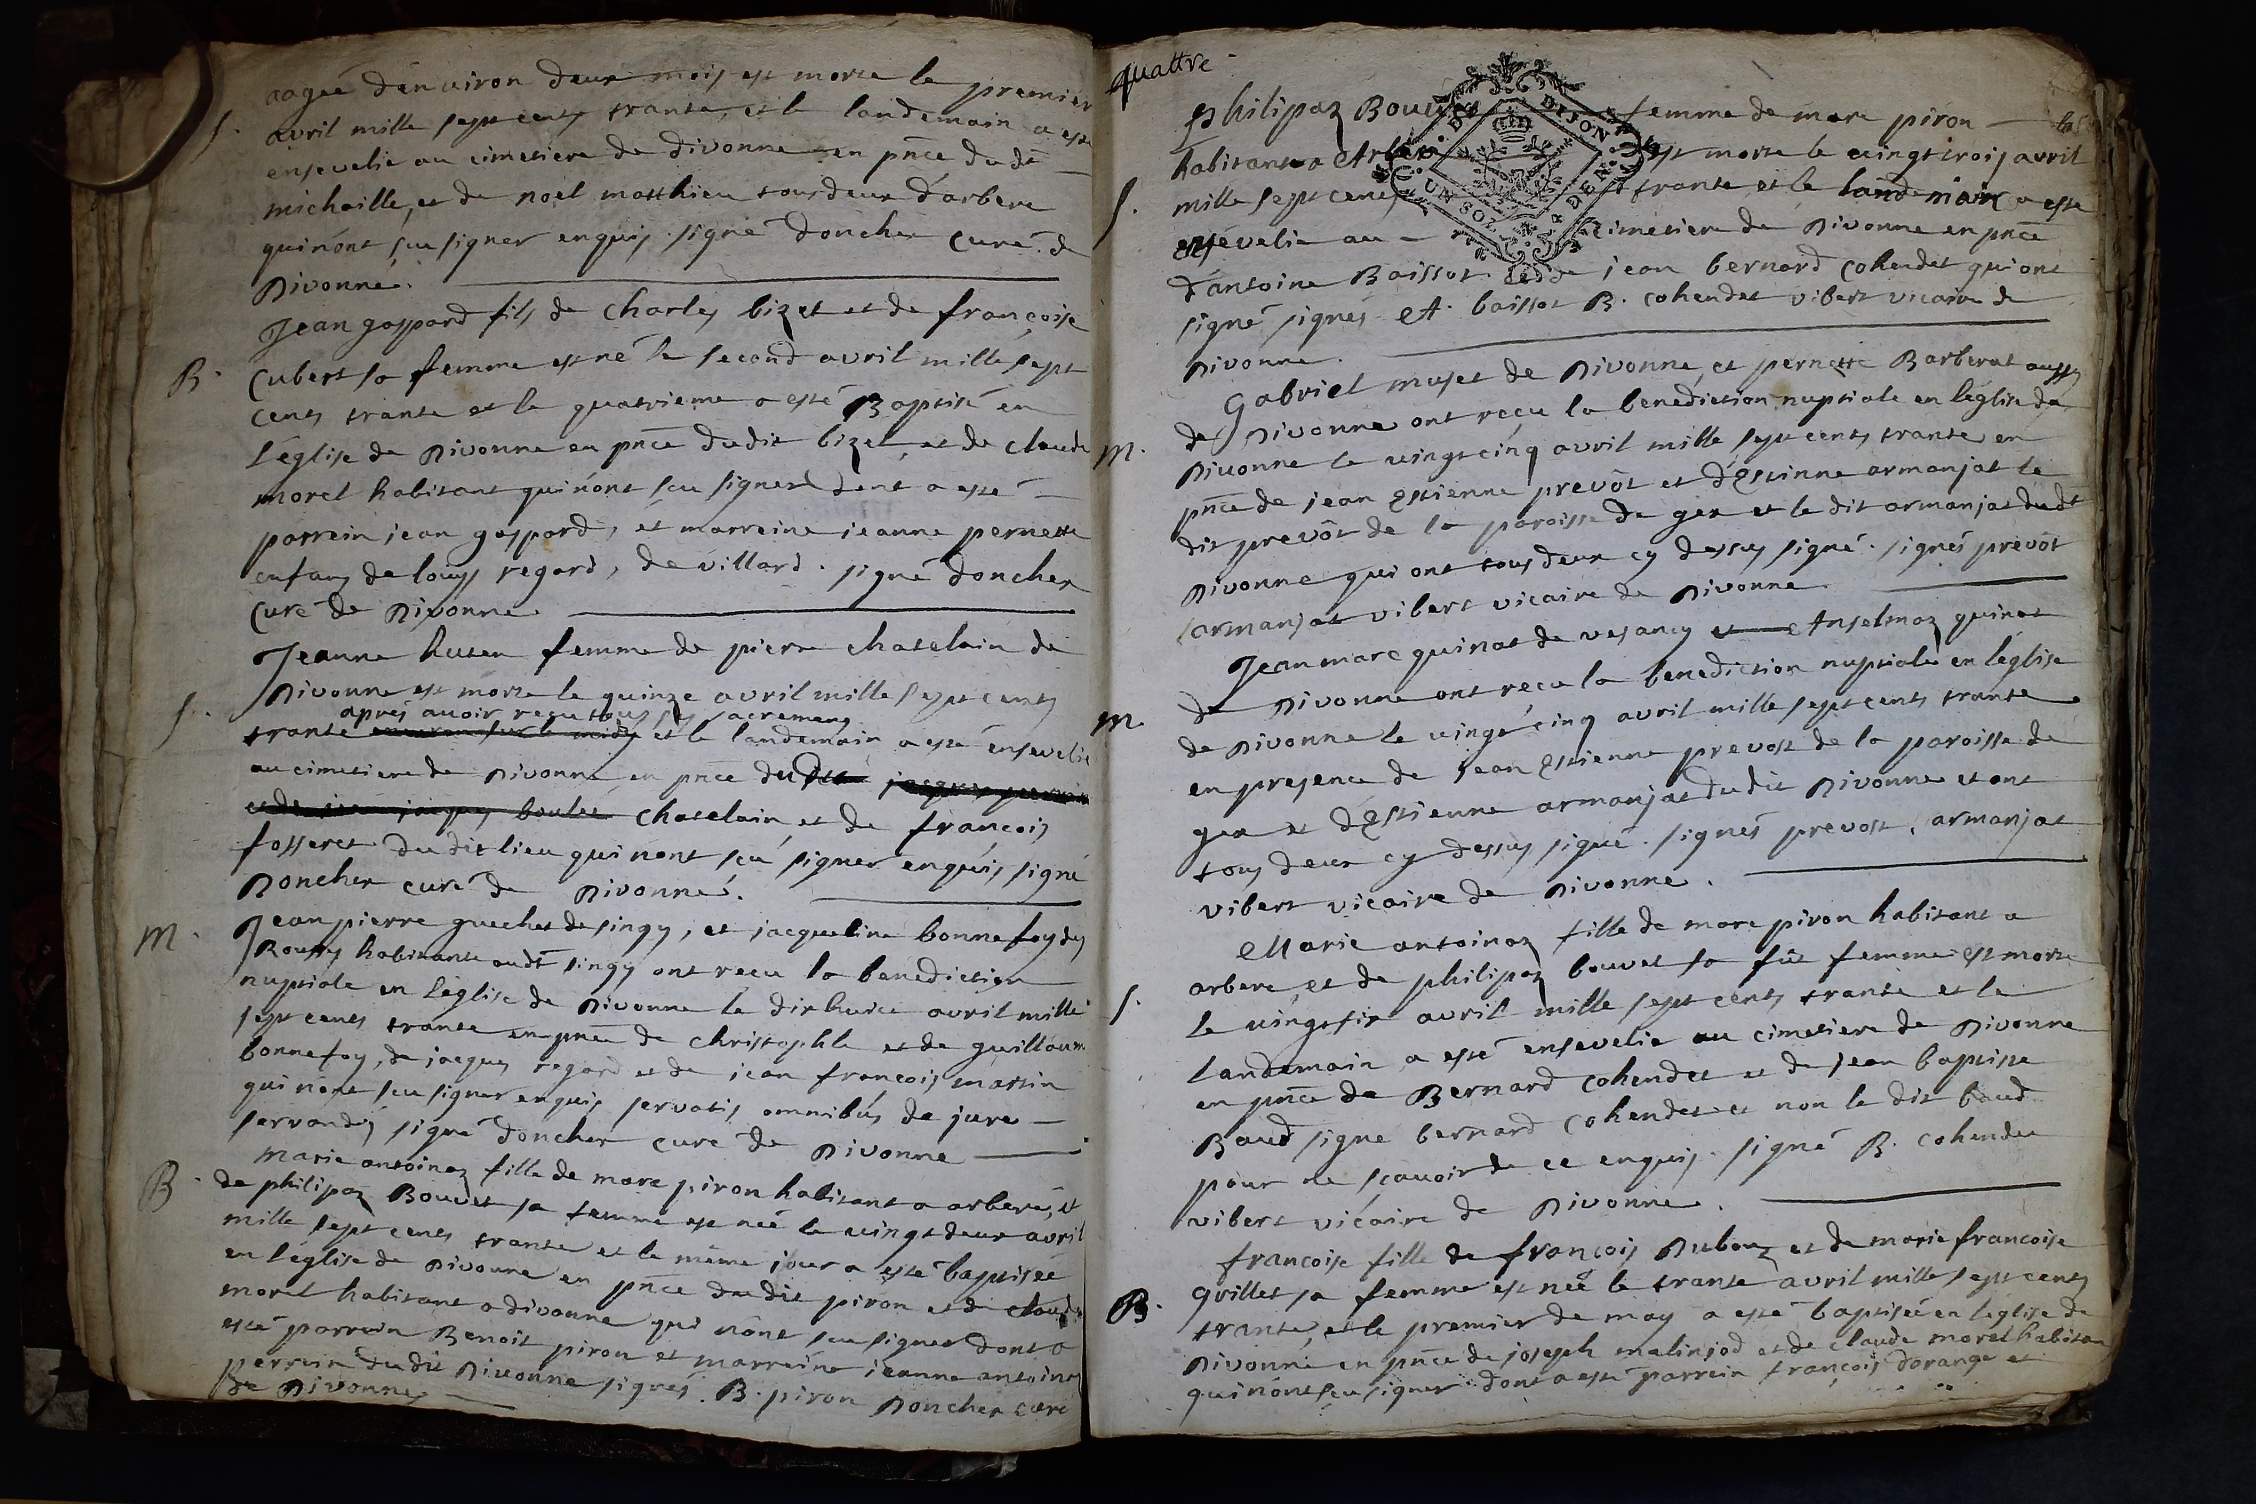 aageé d'enuiron deux mois est morte le premier
S.
avril mille sept cents trante, et le landemain a esté
ensevelie au cimetiere de divonne en pñce du dt
michaille, et de noël matthieu tous deux d'arbere
qui n'ont sçu signer enquis. signé Doncher curé de
Divonne.
Jean gaspard fils de charles bizet et de françoise
B.
Cubert sa femme est né le second avril mille sept
cents trante et le quatrieme a esté Baptisé en
l'église de Divonne en pñce dudit bizet, et de claude
morel habitant qui n'ont sçu signer dont a esté
parrein jean gaspard, et marreine jeanne pernette
enfans de louys regard, de villard. signé doncher
curé de Divonne.
Jeanne huten femme de pierre chatelain de
Divonne est morte le quinze avril mille sept cents
S.
après auoir reçu tous ses sacremens
trante et le landemain a esté ensevelie
au cimetiere de Divonne en pñce du dit
chatelain, et de françois
fosseret du dit lieu qui n'ont sçu signer enquis, signé
Doncher curé de Divonne.
M.
Jean pierre guechet de singy, et jacqueline bonnefoy des
Rousses habitante audt singy ont reçu la benediction
nuptiale en l'église de Divonne le dixhuict avril mille
sept cents trante en pñce de christophle et de guillaume
bonnefoy, de jacques regard et de jean françois martin
qui n'ont sçu signer enquis servatis omnibus de jure
servandis signé doncher curé de Divonne
Marie antoinaz fille de marc piron habitant a arbere, et
B.
de philipaz Bouvet sa femme est neé le vingt deux avril
mille sept cents trante et le même jour a esté baptiseé
en l'église de Divonne en pñce du dit piron et de claude
morel habitant a divonne qui n'ont sçu signer dont a
esté parrein Benoit piron et marreine jeanne antoinaz
perrein du dit Divonne signés. B. piron Doncher curé
de Divonne
quattre
philipaz Bouvet femme de marc piron
habitante a Arbere est morte le vingt trois avril
S.
mille sept cents trante et le landemain a esté
ensevelie au cimetiere de Divonne en pñce
d'antoine Baissot et de jean bernard cohendet qui ont
signé signés A. baissot B. cohendet vibert vicaire de
Divonne.
Gabriel muset de Divonne, et pernette Barberat aussy
de Divonne ont reçu la benediction nuptiale en l'église de
M.
Divonne le vingt cinq avril mille sept cents trante en
pñce de jean estienne prevôt et d'Estienne armanjat le
dit prevôt de la paroisse de gex et le dit armanjat dudt
Divonne qui ont tous deux cy dessus signé. signés prevôt
armanjat vibert vicaire de Divonne
Jean marc quinat de vesancy et Anselmaz quinat
de Divonne ont reçu la benediction nuptiale en l'église
M.
de Divonne le vingt cinq avril mille sept cents trante
en presence de jean Estienne prevost de la paroisse de
gex et d'Estienne armanjat du dit Divonne et ont
tous deux cy dessus signé. signés prevost, armanjat
vibert vicaire de Divonne.
Marie antoinaz fille de marc piron habitant a
arbere, et de philipaz bouvet sa fût femme est morte
S.
le vingt six avril mille sept cents trante et le
landemain a esté ensevelie au cimetiere de Divonne
en pñce de Bernard cohendet et de jean baptiste
Baud signe bernard cohendet et non le dit baud
pour ne sçavoir de ce enquis. signé B. cohendet
vibert vicaire de Divonne.
francoise fille de françois Dubouz et de marie francoise
quillet sa femme est neé le trante avril mille sept cents
B.
trante, et le premier de may a esté baptiseé en l'église de
Divonne en pñce de joseph malinjod et de claude morel habitan
qui n'ont sçu signer dont a esté parrein françois dorange et
G. DE DIJON
UN SOL